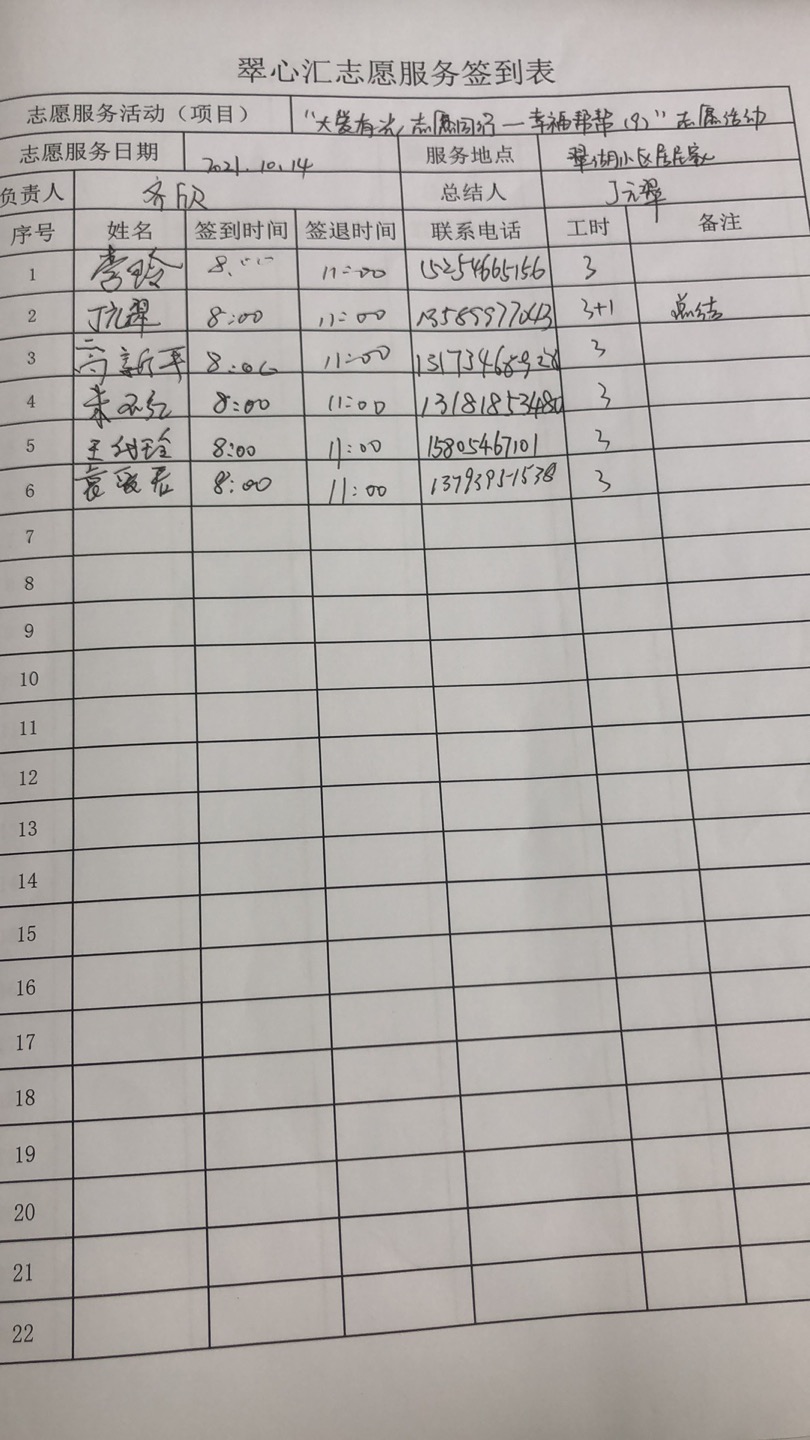 翠心汇志愿服务签到表
志愿服务活动（项目） "大爱有光，志愿同行—幸福帮帮（9）"志愿活动
志愿服务日期 2021.10.14 服务地点 翠湖小区居民家
负责人 齐欣 总结人 丁元翠
序号 姓名 签到时间 签退时间 联系电话 工时 备注
1 李玲 8:00 11:00 15254665156 3
2 丁元翠 8:00 11:00 13589977043 3+1 总结
3 高新平 8:00 11:00 3
4 8:00 11:00 13181853480 3
5 王 8:00 11:00 15805467101 3
6 袁 8:00 11:00 13793951538 3
7
8
9
10
11
12
13
14
15
16
17
18
19
20
21
22